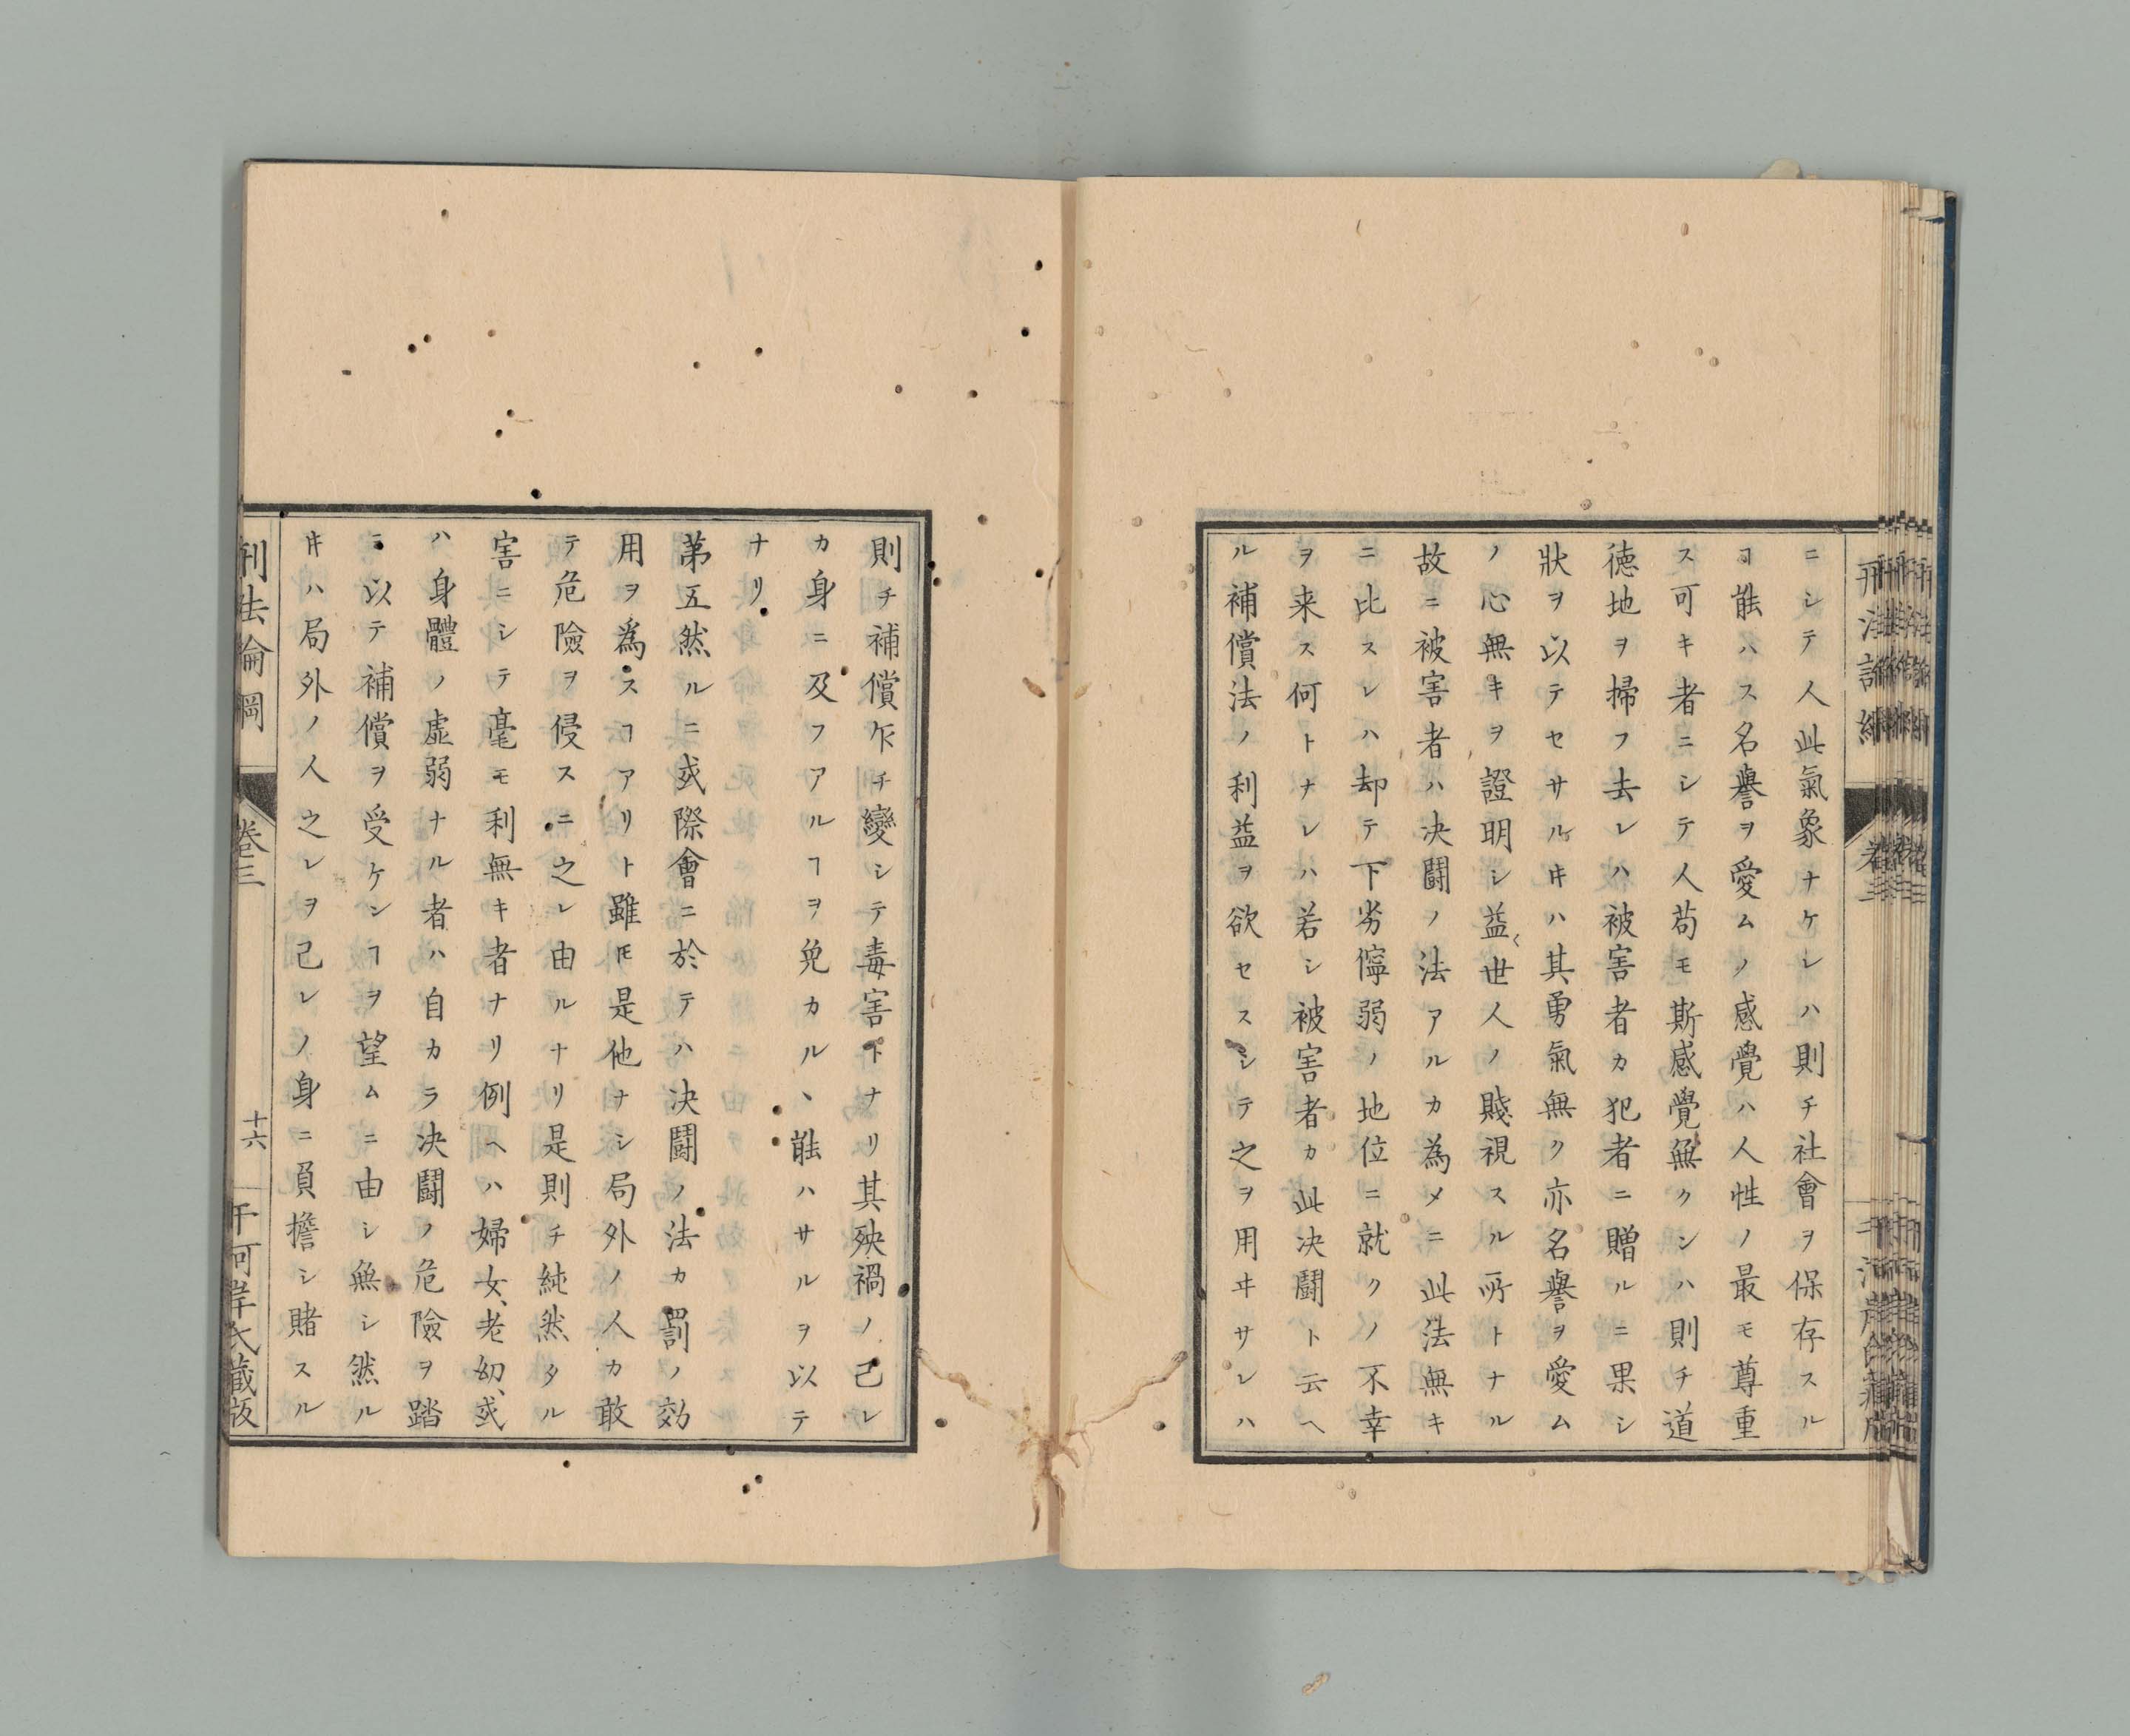 ニシテ人此氣象ナケレハ則チ社會ヲ保存スル
ヿ能ハス名譽ヲ愛ムノ感覺ハ人性ノ最モ尊重
ス可キ者ニシテ人苟モ斯感覺無クンハ則チ道
徳地ヲ掃フ去レハ被害者カ犯者ニ贈ルニ果シ
狀ヲ以テセサルヰハ其勇氣無ク亦名譽ヲ愛ム
ノ心無キヲ證明シ益〻世人ノ賤視スル所トナル
故ニ被害者ハ决闘ノ法アルカ為メニ此法無キ
ニ比スレハ却テ下劣儜弱ノ地位ニ就クノ不幸
ヲ来ス何トナレハ若シ被害者カ此决闘ト云ヘ
ル補償法ノ利益ヲ欲セスシテ之ヲ用ヰサレハ
則チ補償乍チ變シテ毒害トナリ其殃禍ノ己レ
カ身ニ及フアルヿヲ免カルヽ能ハサルヲ以テ
ナリ
第五然ルニ或際會ニ於テハ决闘ノ法カ罰ノ効
用ヲ為スヿアリト雖𪜈是他ナシ局外ノ人カ敢
テ危險ヲ侵スニ之レ由ルナリ是則チ純然タル
害ニシテ毫モ利無キ者ナリ例ヘハ婦女、老幼、或
ハ身體ノ虚弱ナル者ハ自カラ决闘ノ危險ヲ踏
ミ以テ補償ヲ受ケンヿヲ望ムニ由シ無シ然ル
ヰハ局外ノ人之レヲ己レノ身ニ負擔シ賭スル
刑法論綱
卷三
十六
干河岸氏藏板